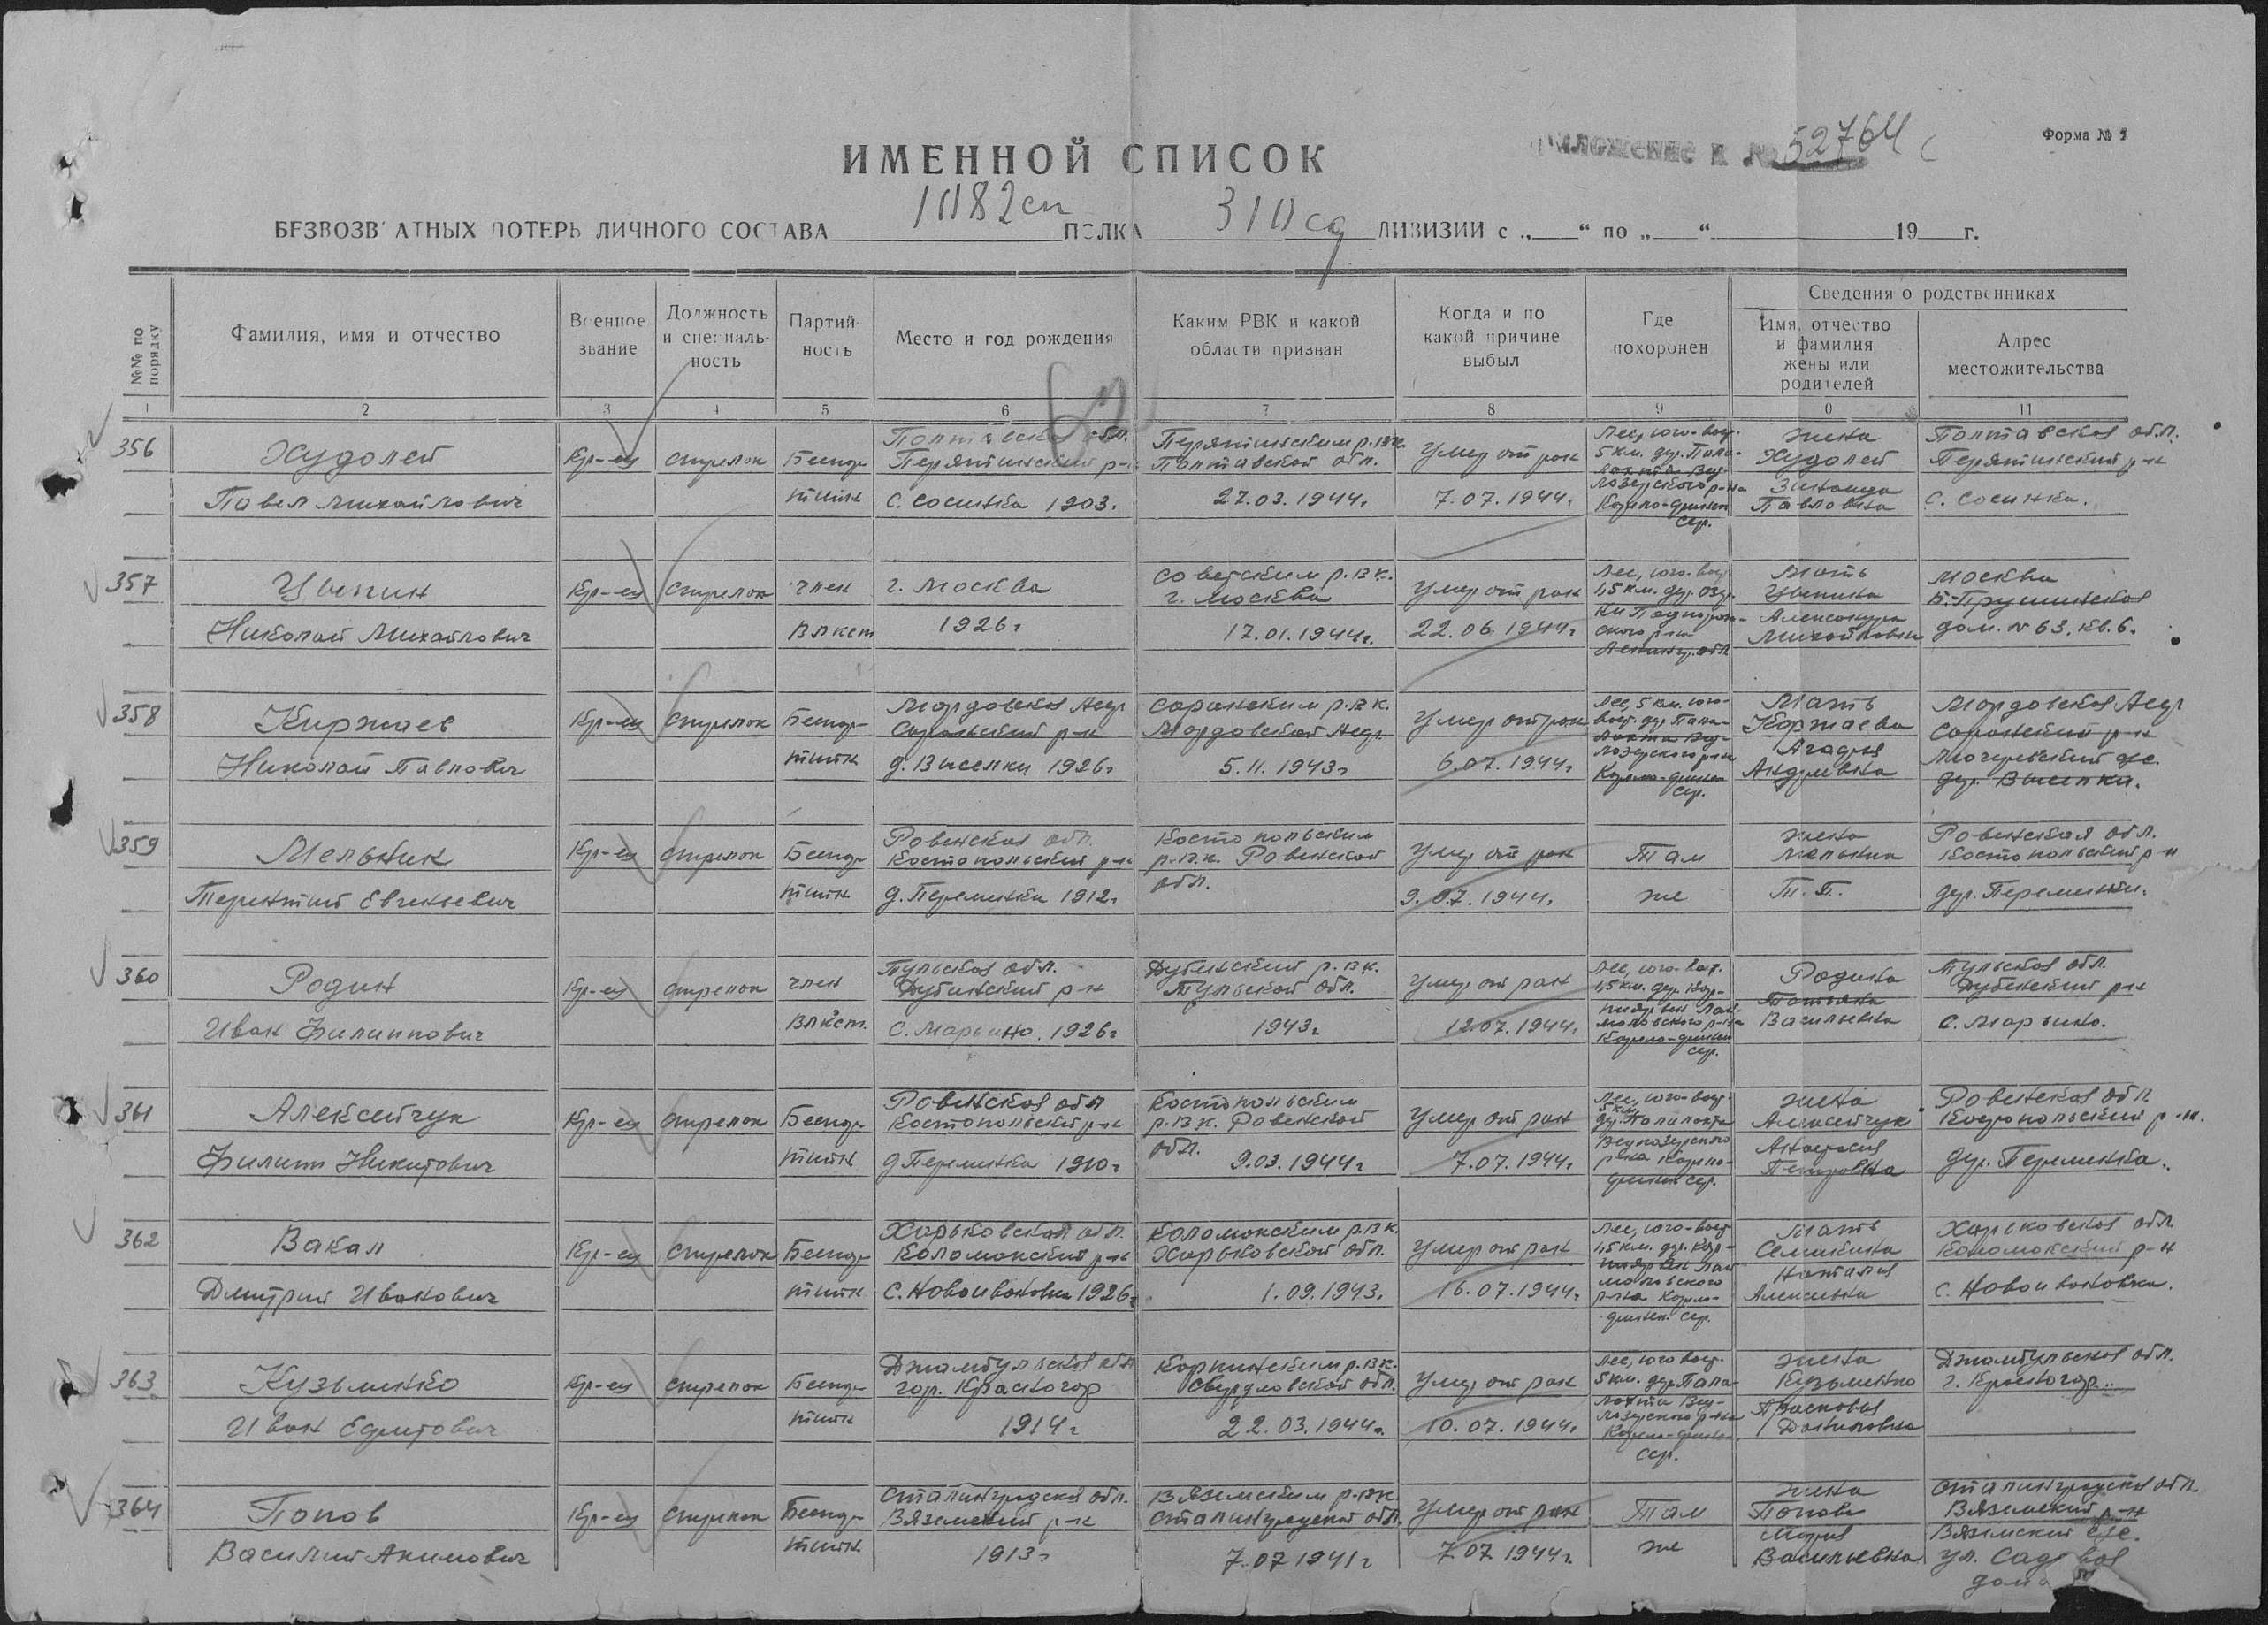 ИМЕННОЙ СПИСОК
Приложение к № 52764 с
Форма № 1
БЕЗВОЗВРАТНЫХ ПОТЕРЬ ЛИЧНОГО СОСТАВА 1082 сп ПОЛКА 310 сд ДИВИЗИИ с „ “ по „ “ 19 г.
№№ по порядку
Фамилия, имя и отчество
Военное звание
Должность и специальность
Партийность
Место и год рождения
Каким РВК и какой области призван
Когда и по какой причине выбыл
Где похоронен
Сведения о родственниках
Имя, отчество и фамилия жены или родителей
Адрес местожительства
1 2 3 4 5 6 7 8 9 10 11
356 Худолей Кр-ец стрелок Беспар- Полтавская обл. Пирятинский р-н Пирятинским р.в.к. Полтавской обл. Умер от ран Лес, юго-вост. 5 км. дер. Пала- жена Худолей Полтавская обл. Пирятинский р-н
Павел Михайлович тийн с. Сосинка 1903. 27.03.1944. 7.07.1944. лахта Вед- лозерского р-на Карело-финск сср. Зинаида Павловна с. Сосинка.
357 Цыпин Кр-ец стрелок член г. Москва Советским р.в.к. г. Москва Умер от ран Лес, юго-вост. 1,5 км. дер. Мать Цыпина Москва
Николай Михайлович влксм 1926г 17.01.1944г. 22.06.1944г ского р-на Ленингр. обл Александра Михайловна дом. № 63. кв. 6.
358 Киржаев Кр-ец стрелок Беспар- Мордовская Асср Саранский р-н Саранским р.в.к. Мордовской Асср. Умер от ран Лес, 5 км. юго- вост. дер. Пала- Мать Киржаева Мордовская Асср Саранский р-н
Николай Павлович тийн д. Выселки 1926г 5.11.1943г 6.07.1944г. лахта Вед- лозерского р-на Карело-финск сср. Андреевна дер. Выселки.
359 Мельник Кр-ец стрелок Беспар- Ровенская обл. Костопольский р-н Костопольским р.в.к. Ровенской обл. Умер от ран Там жена Мельник Ровенская обл. Костопольский р-н
Терентий Евгеньевич тийн д. Перемилка 1912г 9.07.1944. же Т. П. дер. Перемилки.
360 Родин Кр-ец стрелок член Тульская обл. Дубенский р-н Дубенский р.в.к. Тульской обл. Умер от ран Лес, юго-вост. 1,5 км. дер. Родина Тульская обл. Дубенский р-н
Иван Филиппович влксм. с. Марьино. 1926г 1943г 12.07.1944. р-на Карело-финск сср. Татьяна Васильевна с. Марьино.
361 Алексейчук Кр-ец стрелок Беспар- Ровенская обл Костопольский р-н Костопольским р.в.к. Ровенской обл. Умер от ран Лес, юго-вост. 5 км. дер. Палалахта жена Алексейчук Ровенская обл. Костопольский р-н.
Филипп Никитович тийн д. Перемилка 1910г 9.03.1944г 7.07.1944г. Ведлозерского р-на Карело- финск сср. Анастасия Петровна дер. Перемилка.
362 Вакал Кр-ец стрелок Беспар- Харьковская обл. Коломакский р-н Коломакским р.в.к. Харьковской обл. Умер от ран Лес, юго-вост 1,5 км. дер. Мать Семикина Харьковская обл. Коломакский р-н
Дмитрий Иванович тийн с. Новоивановка 1926г. 1.09.1943. 16.07.1944г. р-на Карело- финск. сср. Наталия Алексеевна с. Новоивановка.
363 Кузьменко Кр-ец стрелок Беспар- Джамбульская обл гор. Красногор Карпинским р.в.к. Свердловской обл. Умер от ран Лес, юго вост. 5 км. дер. Пала- жена Кузьменко Джамбульская обл. г. Красногор.
Иван Ефитович тийн 1914г 22.03.1944г. 10.07.1944г. лахта Вед- лозерского р-на Карело-финск. сср. Прасковия Даниловна
364 Попов Кр-ец стрелок Беспар- Сталинградская обл. Вяземский р-н Вяземским р.в.к. Сталинградской обл. Умер от ран Там жена Попова Сталинградская обл. Вяземский р-н
Василий Акимович тийн. 1913г 7.07.1941г 7.07.1944г. же Мария Васильевна Вяземский с/с. ул. Садовая дом